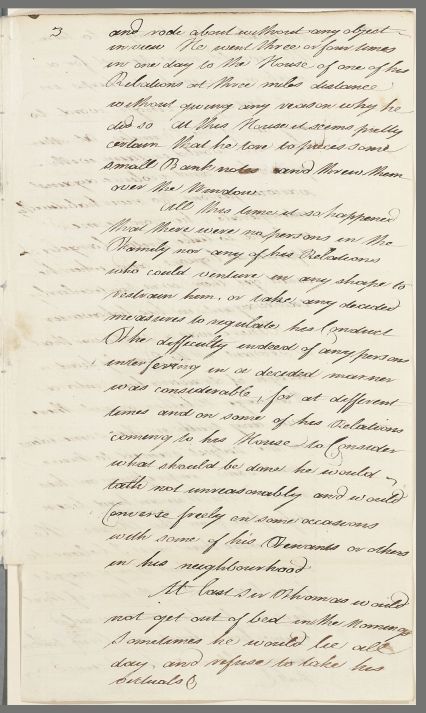 3
and rode about without any object
in view He went three or four times
in one day to the House of one of his
Relations at three miles distance
without giving any reason why he
did so at this House it seems pretty
certain that he tore to pieces some
small Bank notes and threw them
over the Window.
All this time it so happened
that there were no persons in the
Family nor any of his Relations
who could venture in any shape to
restrain him, or take any decided
measures to regulate his Conduct
The difficulty indeed of any persons
interfering in a decided manner
was considerable, for at different
times and on some of his Relations
coming to his House to Consider
what should be done he would
talk not unreasonably and would
Converse freely on some occasions
with some of his Servants or others
in his neighbourhood
At last Sir Thomas would
not get out of bed in the Mornings
Sometimes he would lie all
day, and refuse to take his
victuals